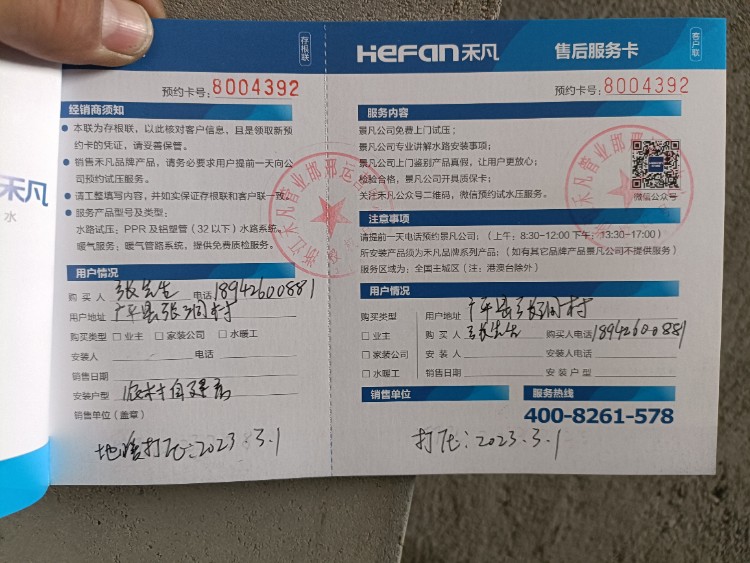 禾凡
水
存根联
预约卡号:8004392
经销商须知
本联为存根联，以此核对客户信息，且是领取新预
约卡的凭证，请妥善保管。
销售禾凡品牌产品，请务必要求用户提前一天向公
司预约试压服务。
请工整填写内容，并如实保证存根联和客户联一致。
服务产品型号及类型：
水路试压：PPR 及铝塑管（32以下）水路系统。
暖气服务：暖气管路系统，提供免费质检服务。
用户情况
购买人 张先生 电话 18942600881
用户地址 广平县张洞村
购买类型 □ 业主 □ 家装公司 □ 水暖工
安装人 电话
销售日期
安装户型 自建房
销售单位（盖章）
地暖打压:2023.3.1
HEFAN禾凡 售后服务卡
客户联
预约卡号:8004392
服务内容
景凡公司免费上门试压；
景凡公司专业讲解水路安装事项；
景凡公司上门鉴别产品真假，让用户更放心；
检验合格，景凡公司开具质保卡；
关注禾凡公众号二维码，微信预约试水压服务。
微信公众号
注意事项
请提前一天电话预约景凡公司：（上午：8:30-12:00 下午：13:30-17:00）
所安装产品须为禾凡品牌系列产品：（如有其它品牌产品景凡公司不提供服务）
服务区域为：全国主城区（注：港澳台除外）
用户情况
购买类型 用户地址 广平县张洞村
□ 业主 购买人 张先生 购买人电话 18942600881
□ 家装公司 安装人 安装人电话
□ 水暖工 销售日期 安装户型
销售单位 服务热线
400-8261-578
打压:2023.3.1